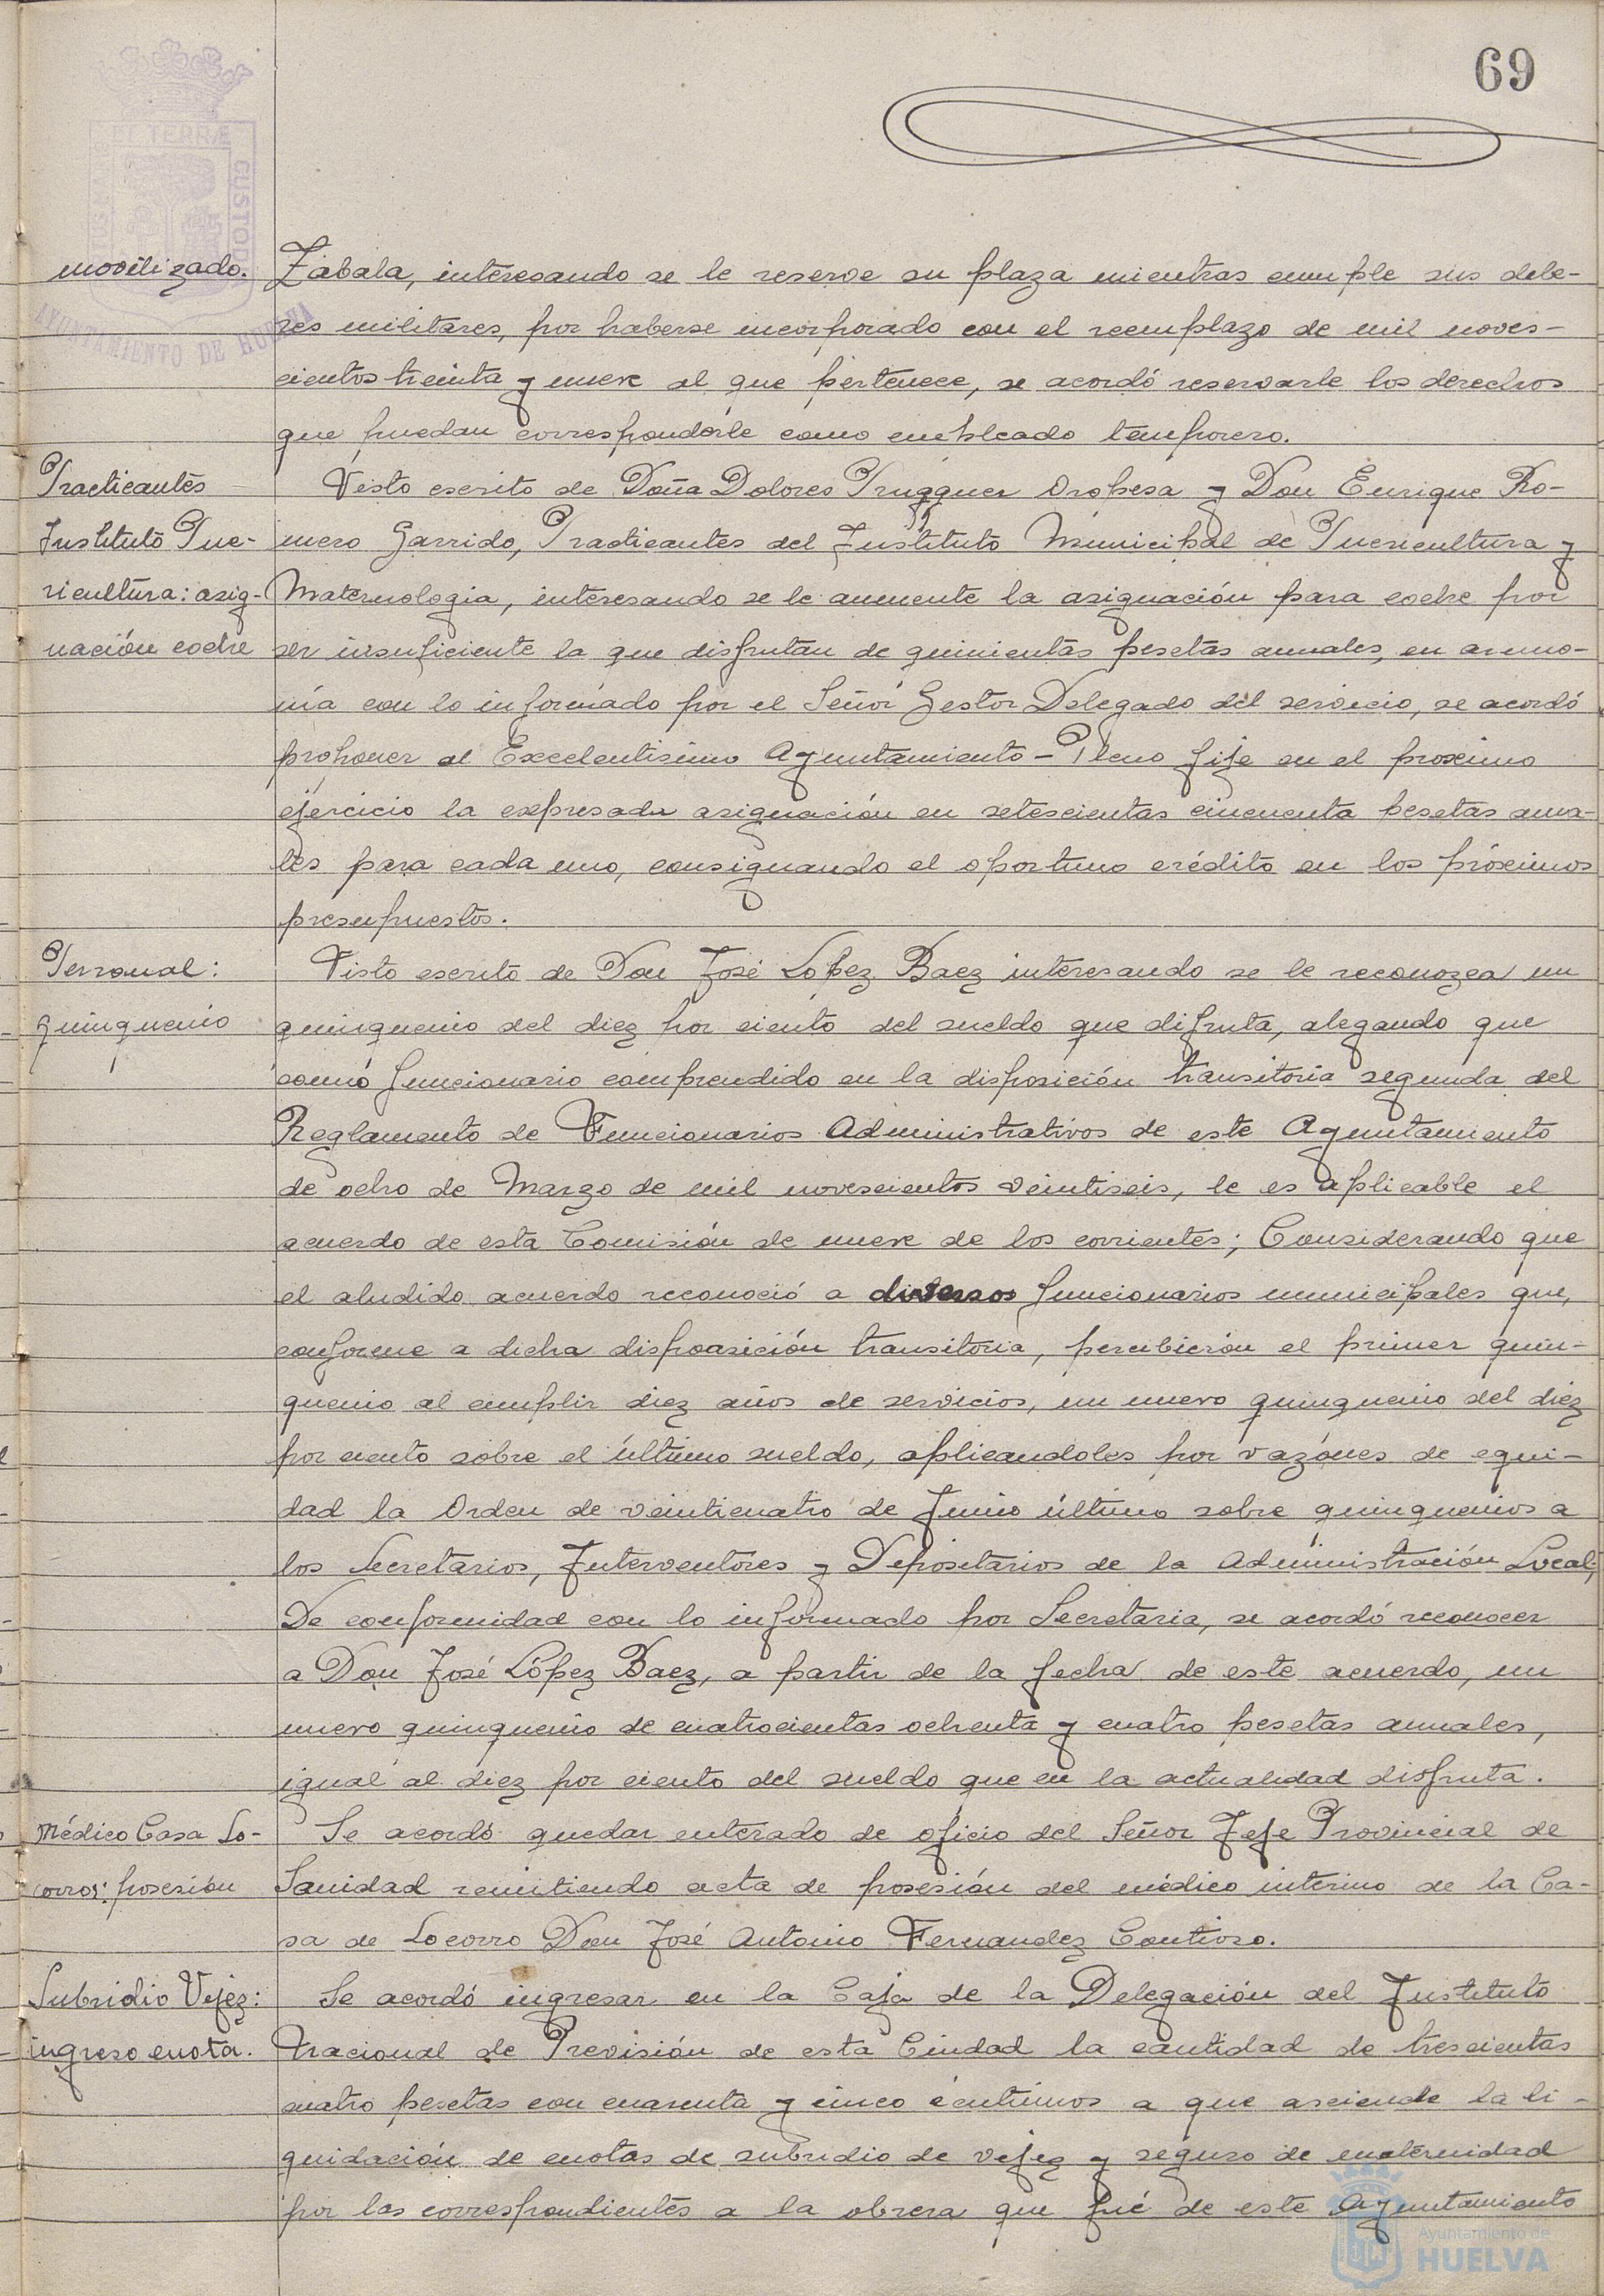 69
PORTUS MARIS ET TERRÆ CUSTODIA
AYUNTAMIENTO DE HUELVA
movilizado.
Zabala, interesando se le reserve su plaza mientras cumple sus debe-
res militares, por haberse incorporado con el reemplazo de mil noves-
cientos treinta y nueve al que pertenece, se acordó reservarle los derechos
que puedan corresponderle como empleado temporero.
Practicantes
Instituto Pue-
ricultura: asig-
nación coche
Visto escrito de Doña Dolores Prugguer Oropesa y Don Enrique Ro-
mero Garrido, Practicantes del Instituto Municipal de Puericultura y
Maternologia, interesando se le aumente la asignación para coche por
ser insuficiente la que disfrutan de quinientas pesetas anuales, en armo-
nía con lo informado por el Señor Gestor Delegado del servicio, se acordó
proponer al Excelentisimo Ayuntamiento-Pleno fije en el proximo
ejercicio la expresada asignación en setescientas cincuenta pesetas anua-
les para cada uno, consignando el oportuno crédito en los próximos
presupuestos.
Personal:
quinquenio
Visto escrito de Don José López Baez interesando se le reconozca un
quinquenio del diez por ciento del sueldo que difruta, alegando que
como funcionario comprendido en la disposición transitoria segunda del
Reglamento de Funcionarios Administrativos de este Ayuntamiento
de ocho de Marzo de mil novescientos veintiseis, le es aplicable el
acuerdo de esta Comisión de nueve de los corrientes; Considerando que
el aludido acuerdo reconoció a diversos funcionarios municipales que,
conforme a dicha disposición transitoria, percibieron el primer quin-
quenio al cumplir diez años de servicios, un nuevo quinquenio del diez
por ciento sobre el último sueldo, aplicandoles por razónes de equi-
dad la Orden de veinticuatro de Junio último sobre quinquenios a
los Secretarios, Interventores y Depositarios de la Administración Local;
De conformidad con lo informado por Secretaria, se acordó reconocer
a Don José López Baez, a partir de la fecha de este acuerdo, un
nuevo quinquenio de cuatrocientas ochenta y cuatro pesetas anuales,
igual al diez por ciento del sueldo que en la actualidad disfruta.
Médico Casa So-
corros: posesión
Se acordó quedar enterado de oficio del Señor Jefe Provincial de
Sanidad remitiendo acta de posesión del médico interino de la Ca-
sa de Socorro Don José Antonio Fernandez Contioso.
Subsidio Vejez:
ingreso cuota.
Se acordó ingresar en la Caja de la Delegación del Instituto
Nacional de Previsión de esta Ciudad la cantidad de trescientas
cuatro pesetas con cuarenta y cinco céntimos a que asciende la li-
quidación de cuotas de subsidio de vejez y seguro de maternidad
por las correspondientes a la obrera que fué de este Ayuntamiento
Ayuntamiento de
HUELVA